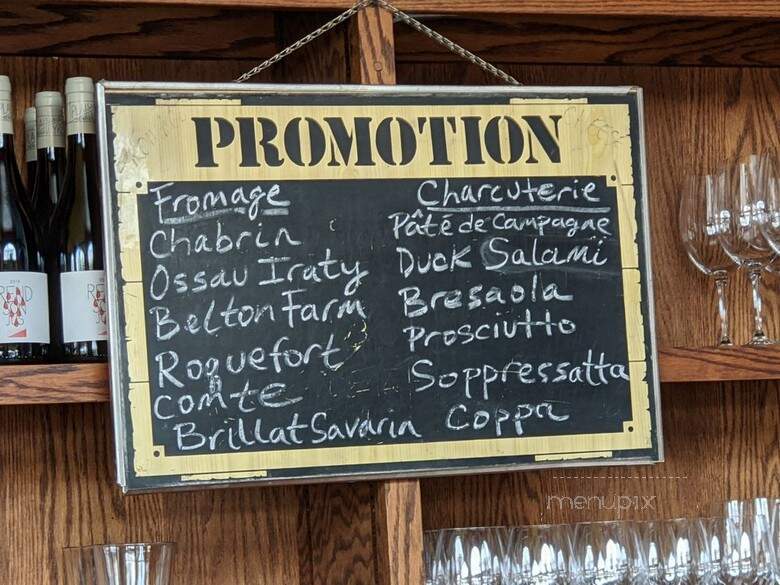 PROMOTION
Fromage
Chabrin
Ossau Iraty
Belton Farm
Roquefort
Comte
Brillat Savarin
Charcuterie
Pâté de Campagne
Duck Salami
Bresaola
Prosciutto
Soppressatta
Coppa
menupix